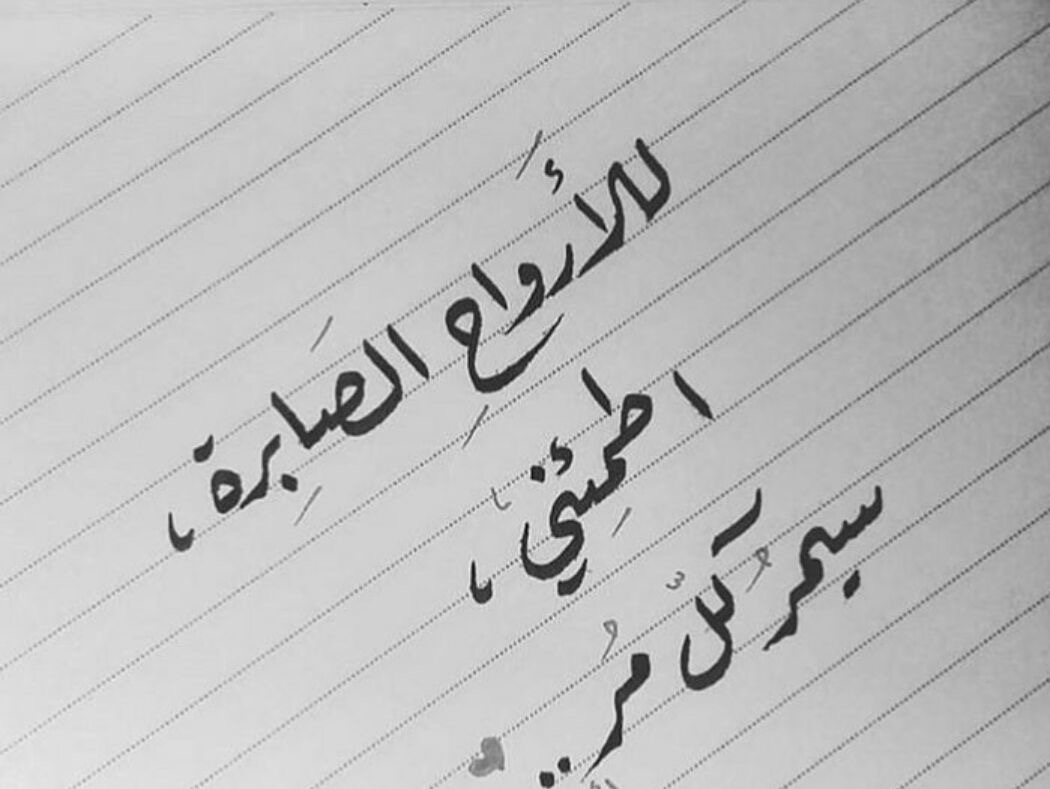 للأَرواحِ الصَابِرة،
اطمِئني،
سيمرُ كلّ مُر..